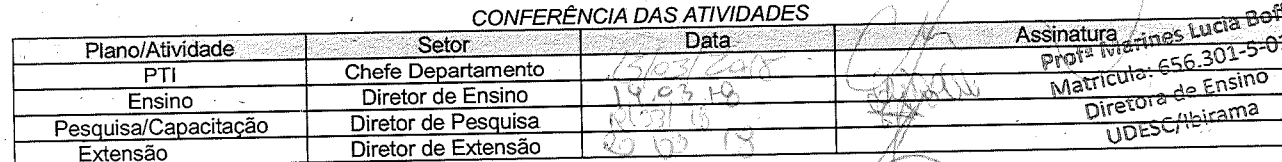 CONFERÊNCIA DAS ATIVIDADES
Plano/Atividade Setor Data Assinatura
PTI Chefe Departamento 13/03/2018
Ensino Diretor de Ensino 19.03.18
Pesquisa/Capacitação Diretor de Pesquisa
Extensão Diretor de Extensão
Profª Marines Lucia
Matrícula: 656.301-5-0
Diretora de Ensino
UDESC/Ibirama